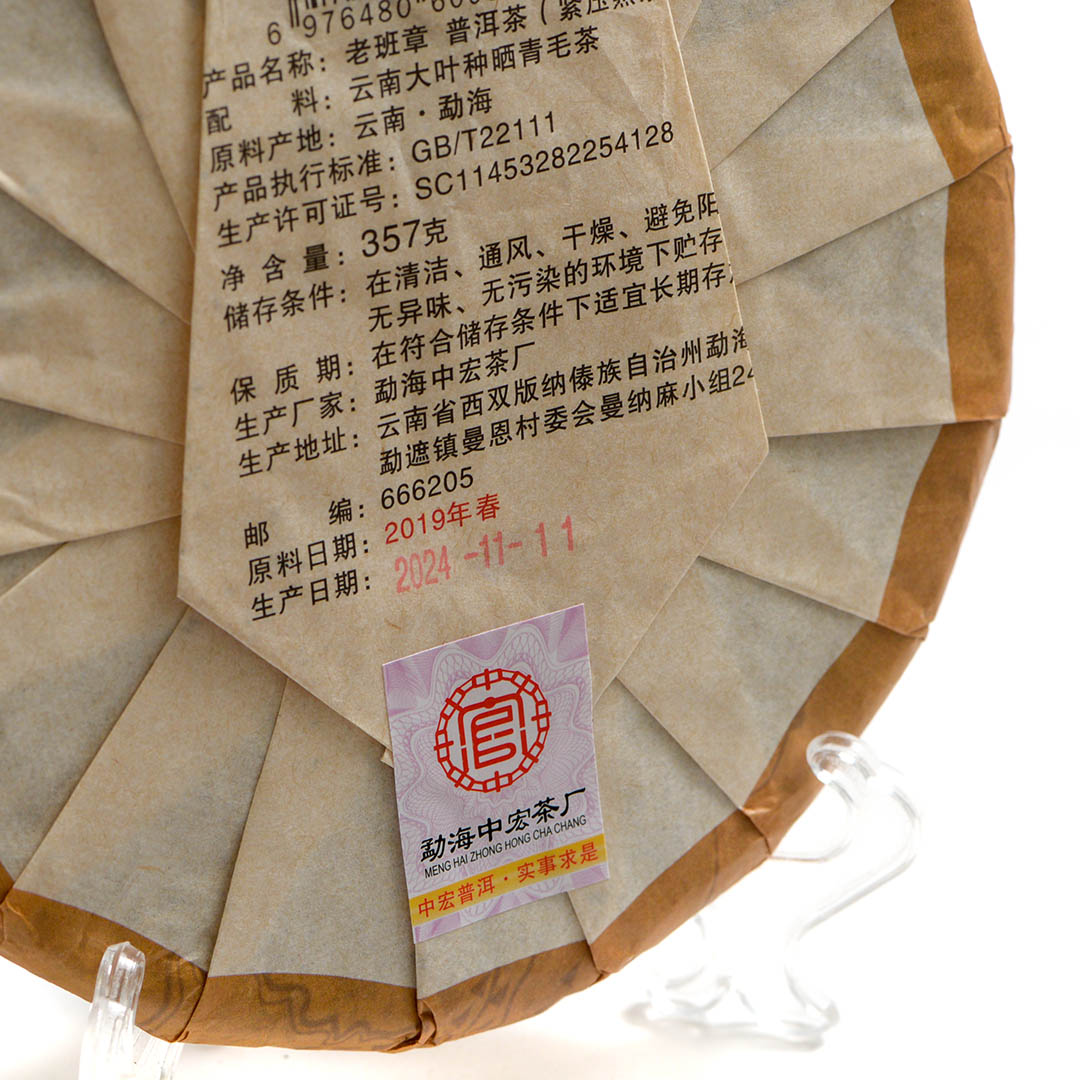 6 976480 60
产品名称：老班章 普洱茶（紧压熟
配 料：云南大叶种晒青毛茶
原料产地：云南·勐海
产品执行标准：GB/T22111
生产许可证号：SC11453282254128
净 含 量：357克
储存条件：在清洁、通风、干燥、避免阳
无异味、无污染的环境下贮存
保 质 期：在符合储存条件下适宜长期存
生产厂家：勐海中宏茶厂
生产地址：云南省西双版纳傣族自治州勐海
勐遮镇曼恩村委会曼纳麻小组24
邮 编：666205
原料日期：2019年春
生产日期：2024-11-11
勐海中宏茶厂
MENG HAI ZHONG HONG CHA CHANG
中宏普洱·实事求是